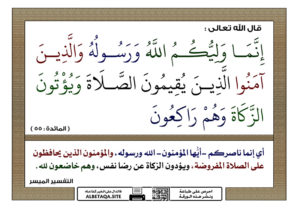 قال الله تعالى :
إِنَّمَا وَلِيُّكُمُ اللَّهُ وَرَسُولُهُ وَالَّذِينَ
آمَنُوا الَّذِينَ يُقِيمُونَ الصَّلَاةَ وَيُؤْتُونَ
الزَّكَاةَ وَهُمْ رَاكِعُونَ
( المائدة : ٥٥ )
أي إنما ناصركم -أيُّها المؤمنون- الله ورسوله، والمؤمنون الذين يحافظون
على الصلاة المفروضة، ويؤدون الزكاة عن رضا نفس، وهم خاضعون لله.
التفسير الميسر
احرص على طباعة
ونشر هذه البوقة
ALBETAQA.SITE